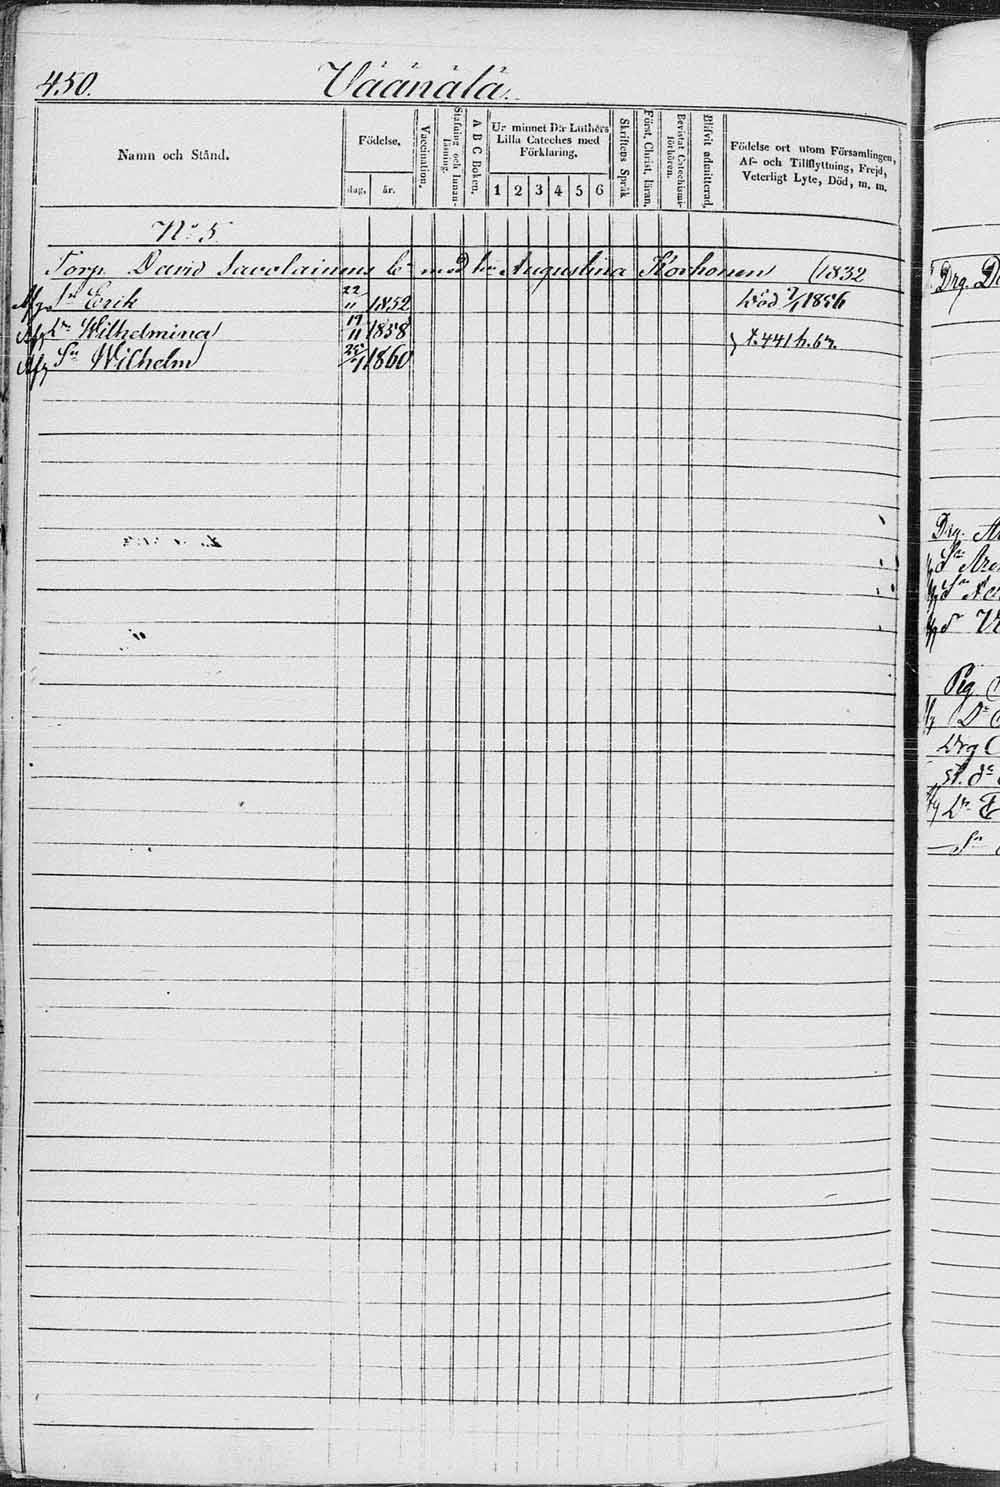 450.
Väänälä.
Namn och Stånd.
Födelse.
dag. år.
Vaccination.
Stafning och Innan-
läsning.
A B C Boken.
Ur minnet D:r Luthers
Lilla Cateches med
Förklaring.
1 2 3 4 5 6
Skriftens Språk
Först. Christ. läran.
Bevistat Catechismi-
förhören.
Blifvit admitterad.
Födelse ort utom Församlingen,
Af- och Tillflyttning, Frejd,
Veterligt Lyte, Död, m. m.
No 5
Torp. David Savolainens med Augustina Korhonen 1832
Sn Erik 22/11 1852 död 1856
Dr Wilhelmina 11 1858
Sn Wilhelm 1860
Drg.
Drg.
Sn
Sn
Pig.
Dr
Drg
Sn